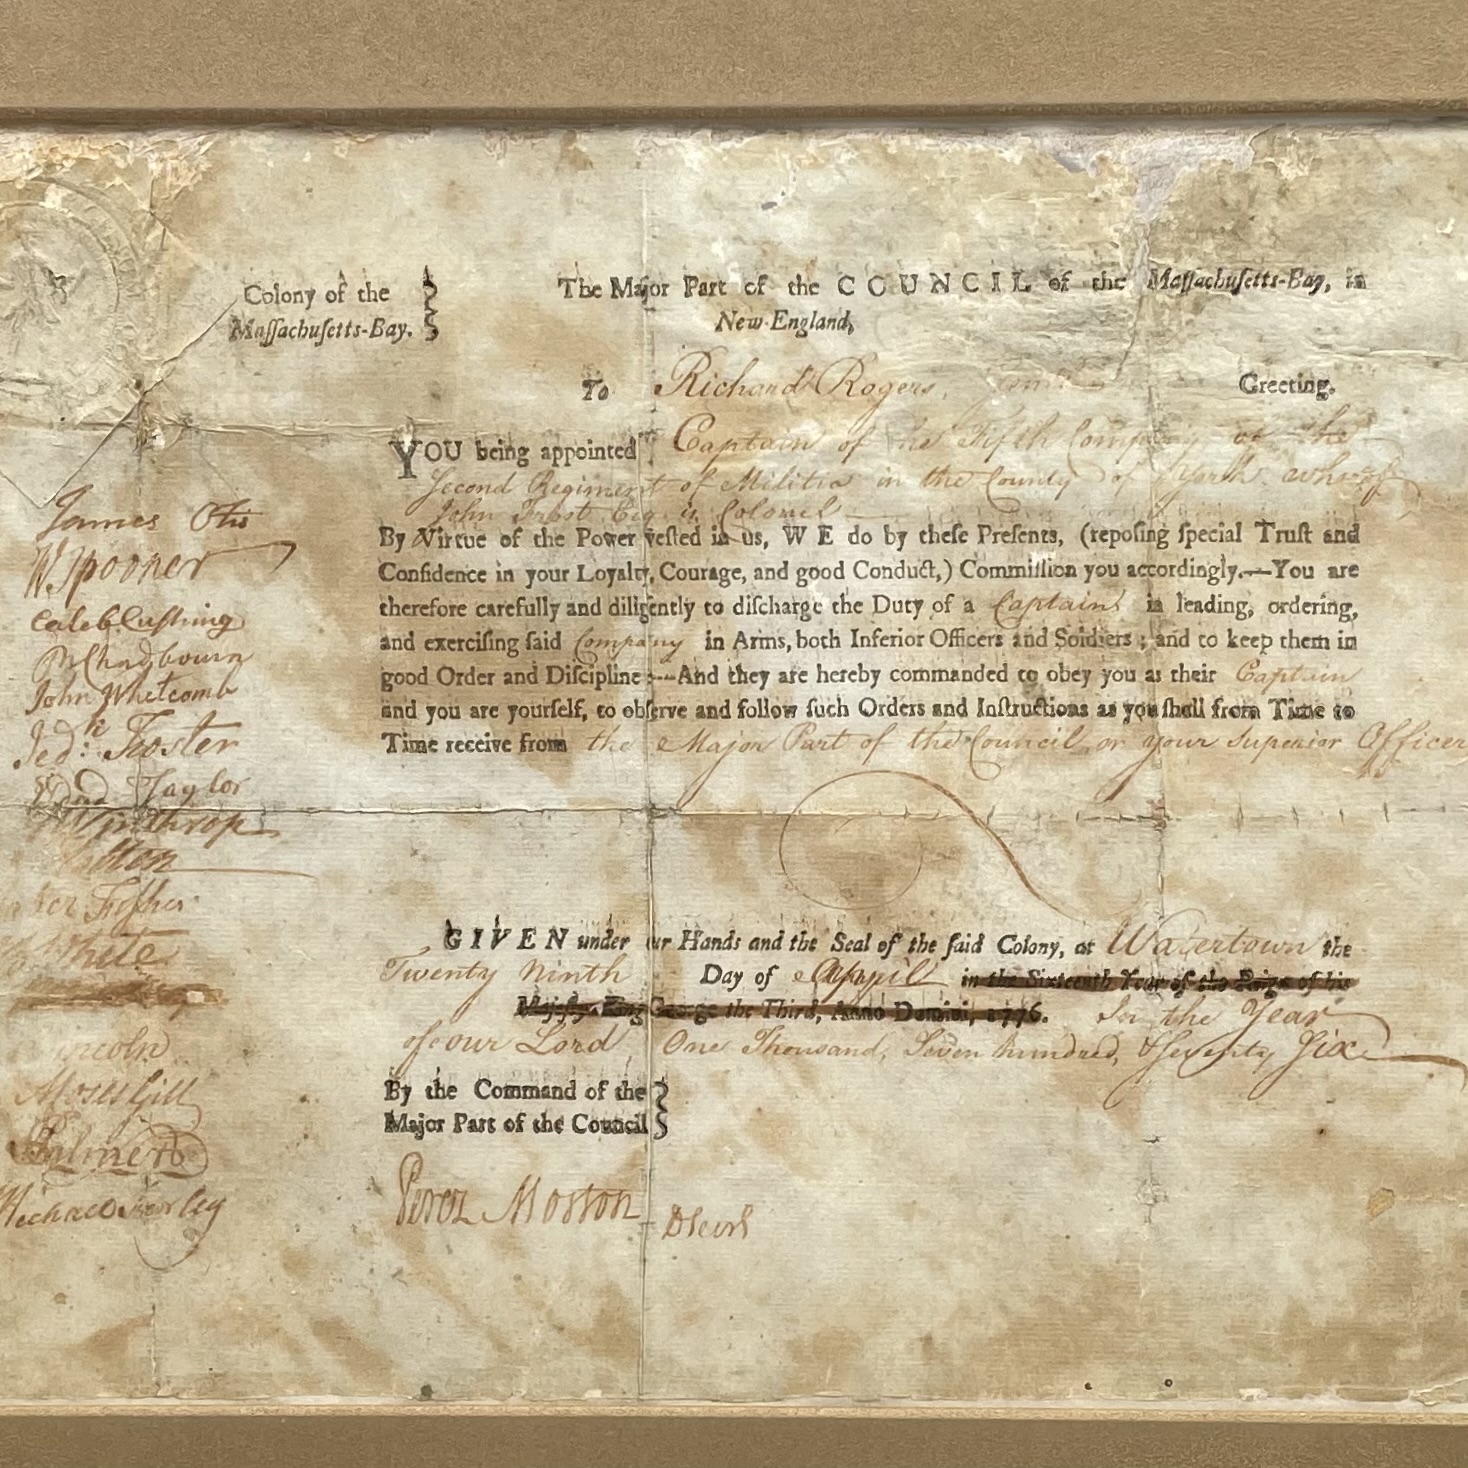 Colony of the
Maſſachuſetts-Bay.
The Major Part of the COUNCIL of the Maſſachuſetts-Bay, in
New-England,
To Richard Rogers, Greeting.
YOU being appointed Captain of the Fifth Company of the
Second Regiment of Militia in the County of York whereof
John Frost Esq is Colonel
By Virtue of the Power veſted in us, WE do by theſe Preſents, (repoſing ſpecial Truſt and
Confidence in your Loyalty, Courage, and good Conduct,) Commiſſion you accordingly.—You are
therefore carefully and diligently to diſcharge the Duty of a Captain in leading, ordering,
and exerciſing ſaid Company in Arms, both Inferior Officers and Soldiers ; and to keep them in
good Order and Diſcipline :—And they are hereby commanded to obey you as their Captain
and you are yourſelf, to obſerve and follow ſuch Orders and Inſtructions as you ſhall from Time to
Time receive from the Major Part of the Council or your Superior Officers
GIVEN under our Hands and the Seal of the ſaid Colony, at Watertown the
Twenty Ninth Day of April in the Sixteenth Year of the Reign of his
Majeſty King George the Third, Anno Domini, 1776. In the Year
of our Lord One Thousand, Seven hundred, & Seventy Six
By the Command of the
Major Part of the Council
Perez Morton Dsecry
James Otis
W Spooner
Caleb Cushing
B Chadbourn
John Whetcomb
Jedh: Foster
Taylor
Winthrop
Fisher
White
Lincoln
Moses Gill
Palmer
Michael Farley